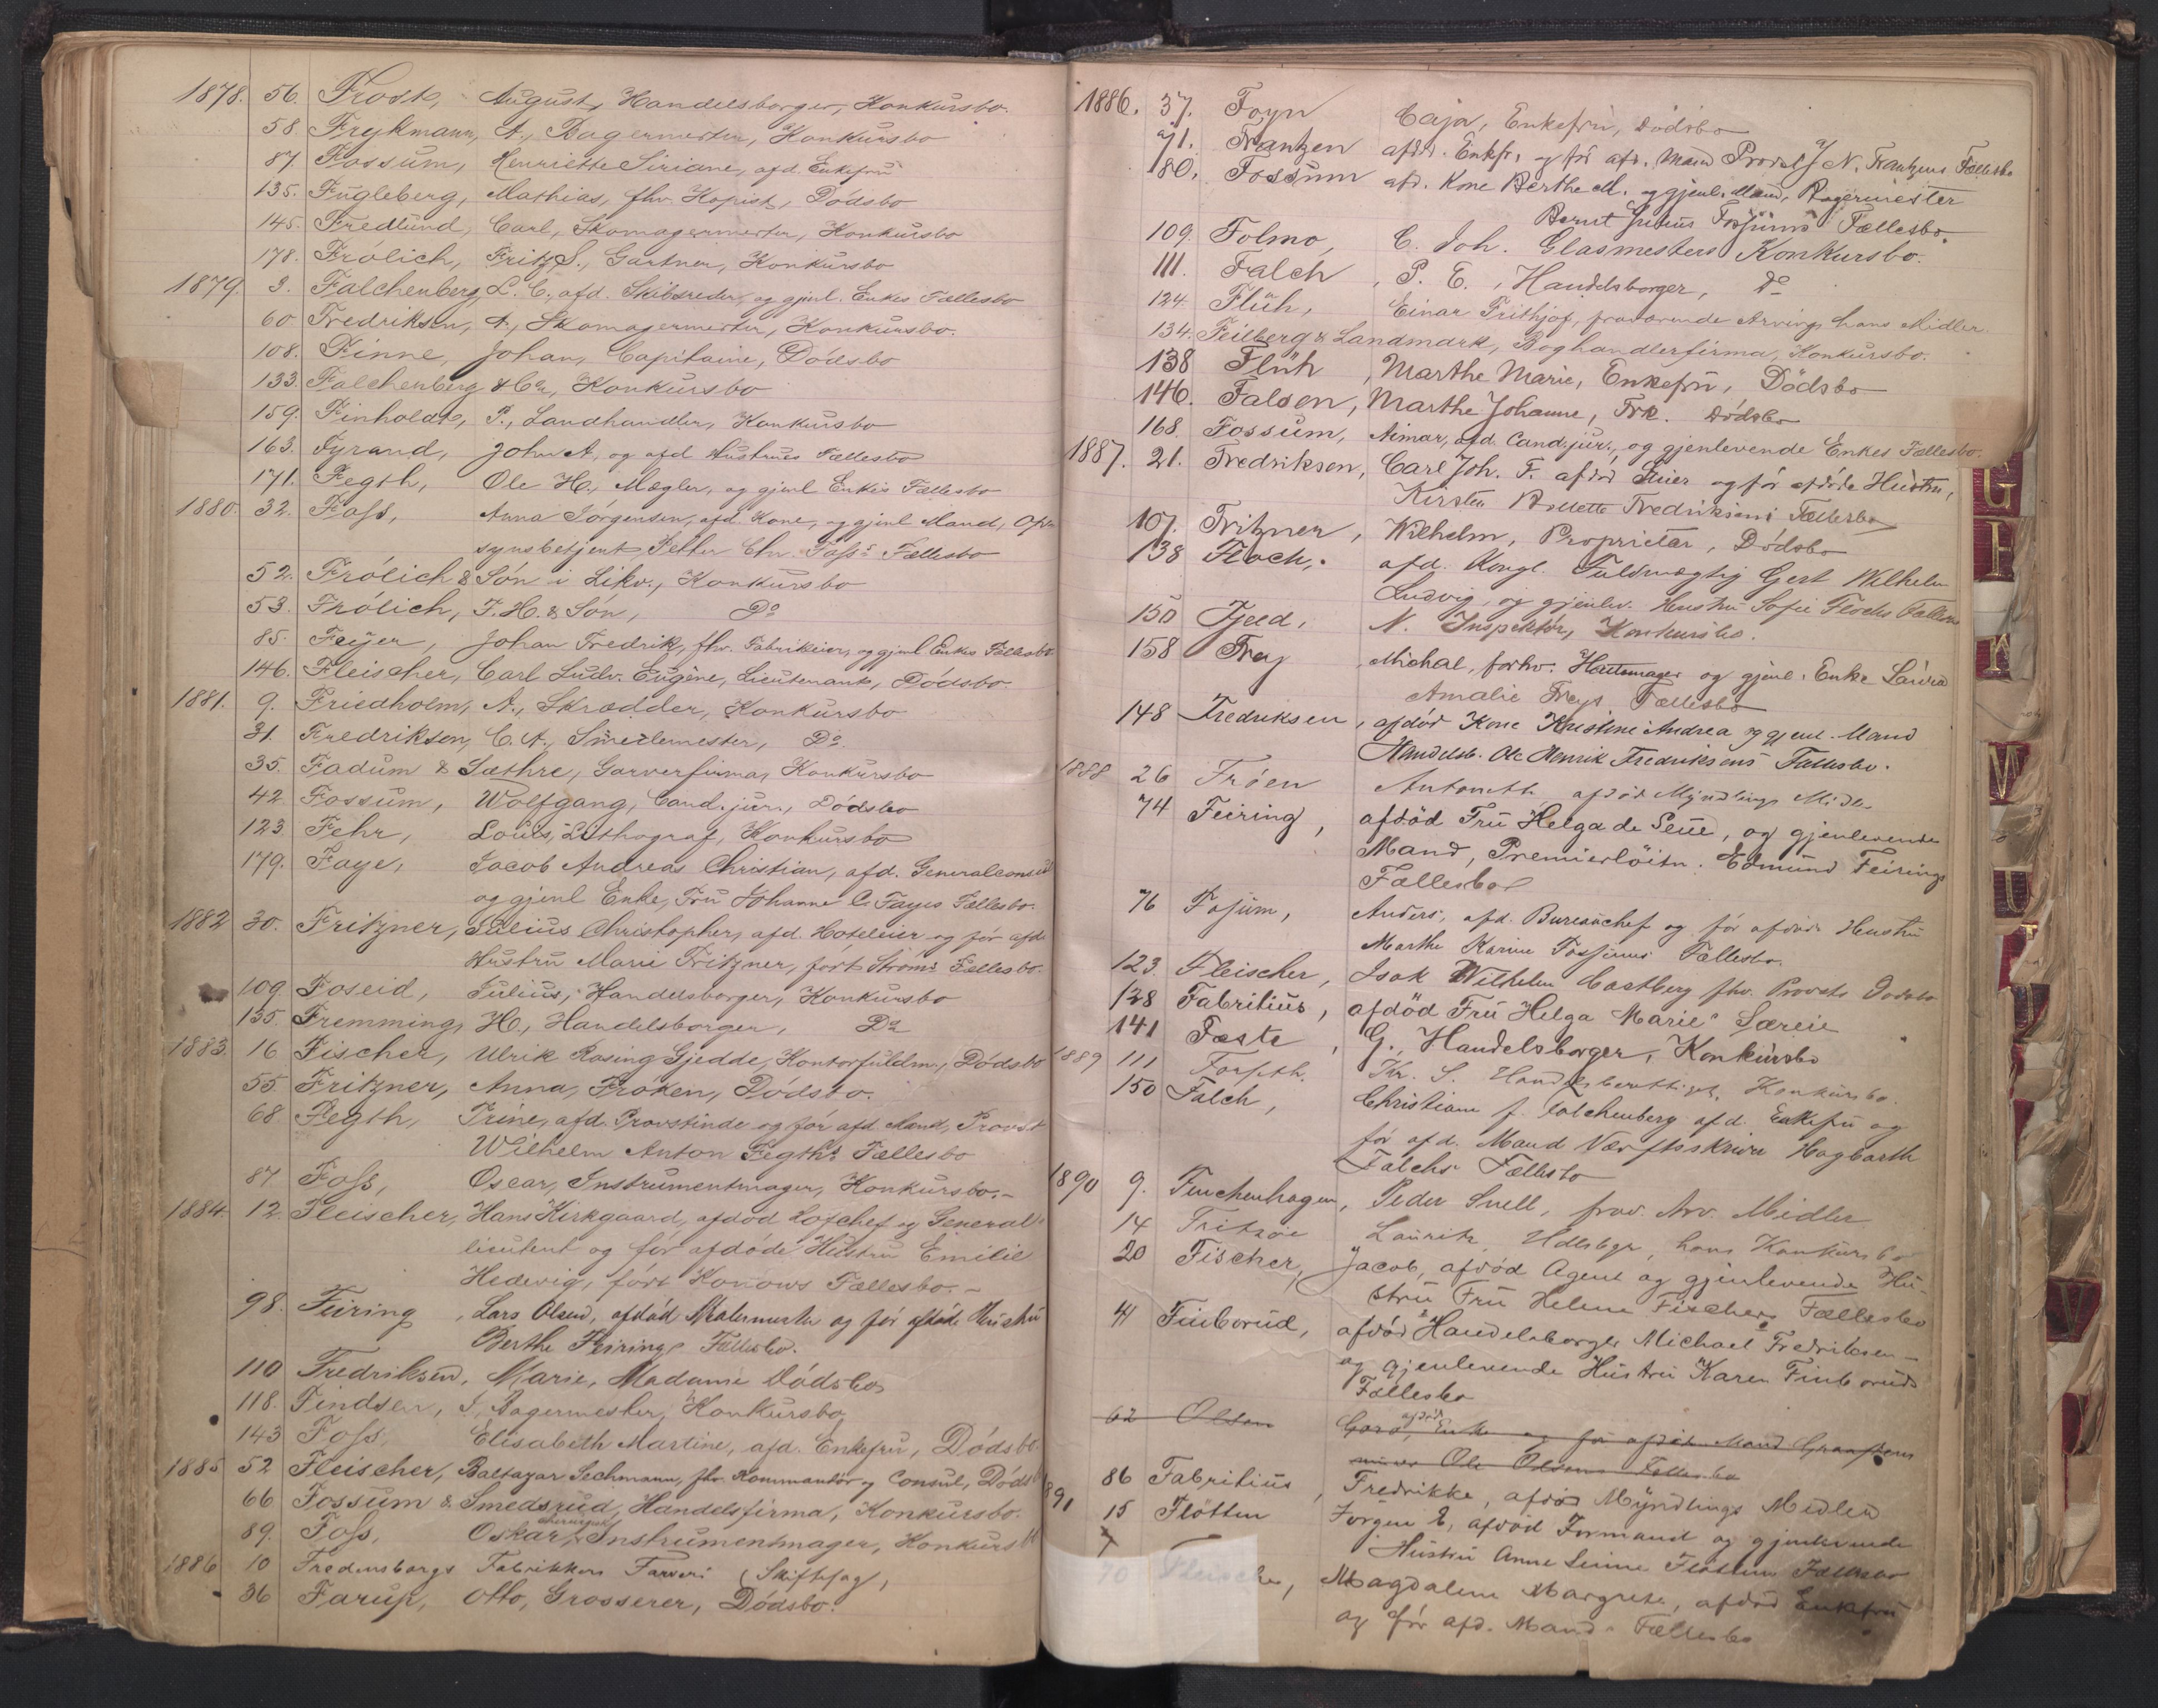 1878. 56. Frost, August, Handelsborger, Konkursbo.
58. Frykmann, A., Bagermester, Konkursbo
87 Fossum, Henriette Siriane, afd. Enkefru
135. Fugleberg, Mathias, fhv. Kopist, Dödsbo
145. Fredlund, Carl, Skomagermester, Konkursbo
178. Frölich, Fritz S., Gartner, Konkursbo
1879. 3. Falchenberg, L. C., afd. Skibsreder, og gjenl. Enkes Fællesbo
60 Fredriksen, A., Skomagermester, Konkursbo.
108. Finne, Johan, Capitaine, Dödsbo
133. Falchenberg & Co, Konkursbo
159. Finholdt, P., Landhandler, Konkursbo
163. Fyrand, John A, og afd Hustrues Fællesbo
171. Fegth, Ole H., Mægler, og gjenl Enkes Fællesbo
1880. 32. Foss, Anna Jörgensen, afd. Kone, og gjenl Mand, Op-
synsbetjent Petter Chr. Foss's Fællesbo
52. Frölich & Sön i Likv., Konkursbo
53. Frölich, F. H. & Sön, Do
85. Feyer, Johan Fredrik, fhv. Fabrikeier, og gjenl Enkes Fællesbo
146. Fleischer, Carl Ludv. Eugène, Lieutenant, Dödsbo.
1881. 9. Friedholm, A., Skrædder, Konkursbo
31. Fredriksen, C. A., Smedemester, Do.
35. Fadum & Sæthre, Garverfirma, Konkursbo
42 Fossum, Wolfgang, Cand. jur., Dödsbo
123. Fehr, Louis, Lithograf, Konkursbo
179. Faye, Jacob Andreas Christian, afd. Generalconsul
og gjenl Enke, Fru Johanne C. Fayes Fællesbo.
1882 30. Fritzner, Julius Christopher, afd. Hoteleier og för afd
Hustru Marie Fritzner, födt Ströms Fællesbo.
109 Foseid, Julius, Handelsborger, Konkursbo
135. Fremming, H., Handelsborger, Do
1883. 16. Fischer, Ulrik Rosing Gjedde, Kontorfuldm., Dödsbo
55. Fritzner, Anna, Fröken, Dödsbo.
68. Fegth, Trine, afd. Provstinde og för afd Mand, Provst
Wilhelm Anton Fegths Fællesbo
87 Foss, Oscar, Instrumentmager, Konkursbo.-
1884. 12 Fleischer, Hans Kirkgaard, afdöd Hofchef og General-
lieutent og för afdöde Hustru Emilie
Hedevig, född Konows Fællesbo.-
98. Feiring, Lars Olsen, afdöd Malermester og för afdöde Hustru
Berthe Feirings Fællesbo.
110 Fredriksen, Marie, Madame Dödsbo
118. Findsen, J., Bagermester, Konkursbo
143 Foss, Elisabeth Martine, afd. Enkefru, Dödsbo.
1885 52 Fleischer, Baltazar Sechmann, fhv. Kommandör og Consul, Dödsb
66 Fossum & Smedsrud, Handelsfirma, Konkursbo.
89. Foss, Oskar, chirurgisk Instrumentmager, Konkursb
1886 10 Fredensborgs Fabrikkers Farveri (Skiftesag),
36 Farup, Otto, Grosserer, Dödsbo.
1886. 37. Foyn Caja, Enkefru, Dödsbo
71. Frantzen afdd. Enkefr. og för afd. Mand Provst J N. Frantzens Fællesbo
180. Fossum afd. Kone Berthe M. og gjenl. Mand, Bagermester
Bernt Julius Fossums Fællesbo.
109. Folmo, C. Joh. Glasmesters Konkursbo.
111. Falch, P. E., Handelsborger, Do
124. Flüh, Einar Frithjof, fraværende Arving, hans Midler.
134. Feilberg & Landmark, Boghandlerfirma, Konkursbo.
138 Flüh, Marthe Marie, Enkefru, Dödsbo
146. Falsen, Marthe Johanne, Frk. Dödsbo
168. Fossum, Aimar, afd. Cand. jur., og gjenlevende Enkes Fællesbo.
1887. 21. Fredriksen, Carl Joh. F. afdöd Eier og för afdöde Hustru,
Kirsten Fredriksens Fællesbo
107. Fritzner, Wilhelm, Proprietær, Dödsbo
138 Floch, afd. Kongl. Fuldmægtig Gert Wilhelm
Ludvig, og gjenlev. Hustru Sofie Flochs Fælles
150 Fjeld, N. Inspektör, Konkursbo.
158 Frey, Michal, forhv. Hattemager og gjenl. Enke Laura
Amalie Freys Fællesbo
148 Fredriksen, afdöd Kone Kristine Andrea og gjenl. Mand
Handelsb. Ole Henrik Fredriksens Fællesbo.
1888 26 Fröen Antoneth afdöd Myndlings Midler
74 Feiring, afdöd Fru Helga de Seue, og gjenlevende
Mand, Premierlöitn. Edmund Feirings
Fællesbo
76 Fosum, Anders, afd. Bureauchef og för afdöde Hustru
Marthe Karine Fossums Fællesbo.
123. Fleischer, Isak Wilhelm Castberg fhv. Provsts Dödsbo
128 Fabritius, afdöd Fru Helga Marie Særeie
141 Fæste, G., Handelsborger, Konkursbo
1889 111 Forseth. Kr. S. Handelsberettiget, Konkursbo.
150 Falch, Christiane f. Falchenberg afd. Enkefru og
för afd. Mand Værftsskriver Hagbarth
Falchs Fællesbo
1890 9. Finchenhagen, Peder Snell, frav. Arv. Midler
14 Fritzöe Lauritz, Hdlsbgr, hans Konkursbo
20 Fischer, Jacob, afdöd Agent og gjenlevende Hu-
stru Fru Helene Fischers Fællesbo
41 Finborud, afdöd Handelsborger Michael Fredriksen
og gjenlevende Hustru Karen Finboruds
Fællesbo
62 Olsen Goro, afdöd Enke og för afdöde Mand
Ole Olsens Fællesbo
86 Fabritius, Fredrikke, afdöd Myndlings Midler
1891 15 Flötten Jörgen E, afdöd Formand og gjenlevende
Hustru Anne Flötten Fællesbo
70 Fleischer, Magdalene Margrete, afdöd Enkefru
og för afd. Mands Fællesbo
G
I
K
W
U
V
V